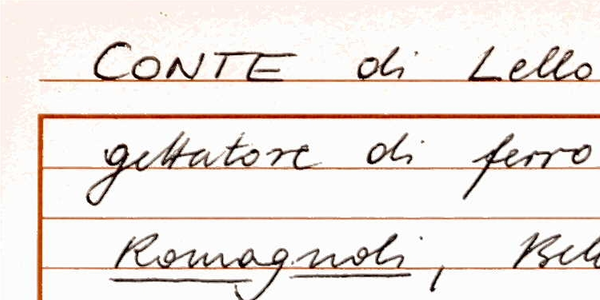 CONTE di Lello
gettatore di ferro
Romagnoli,